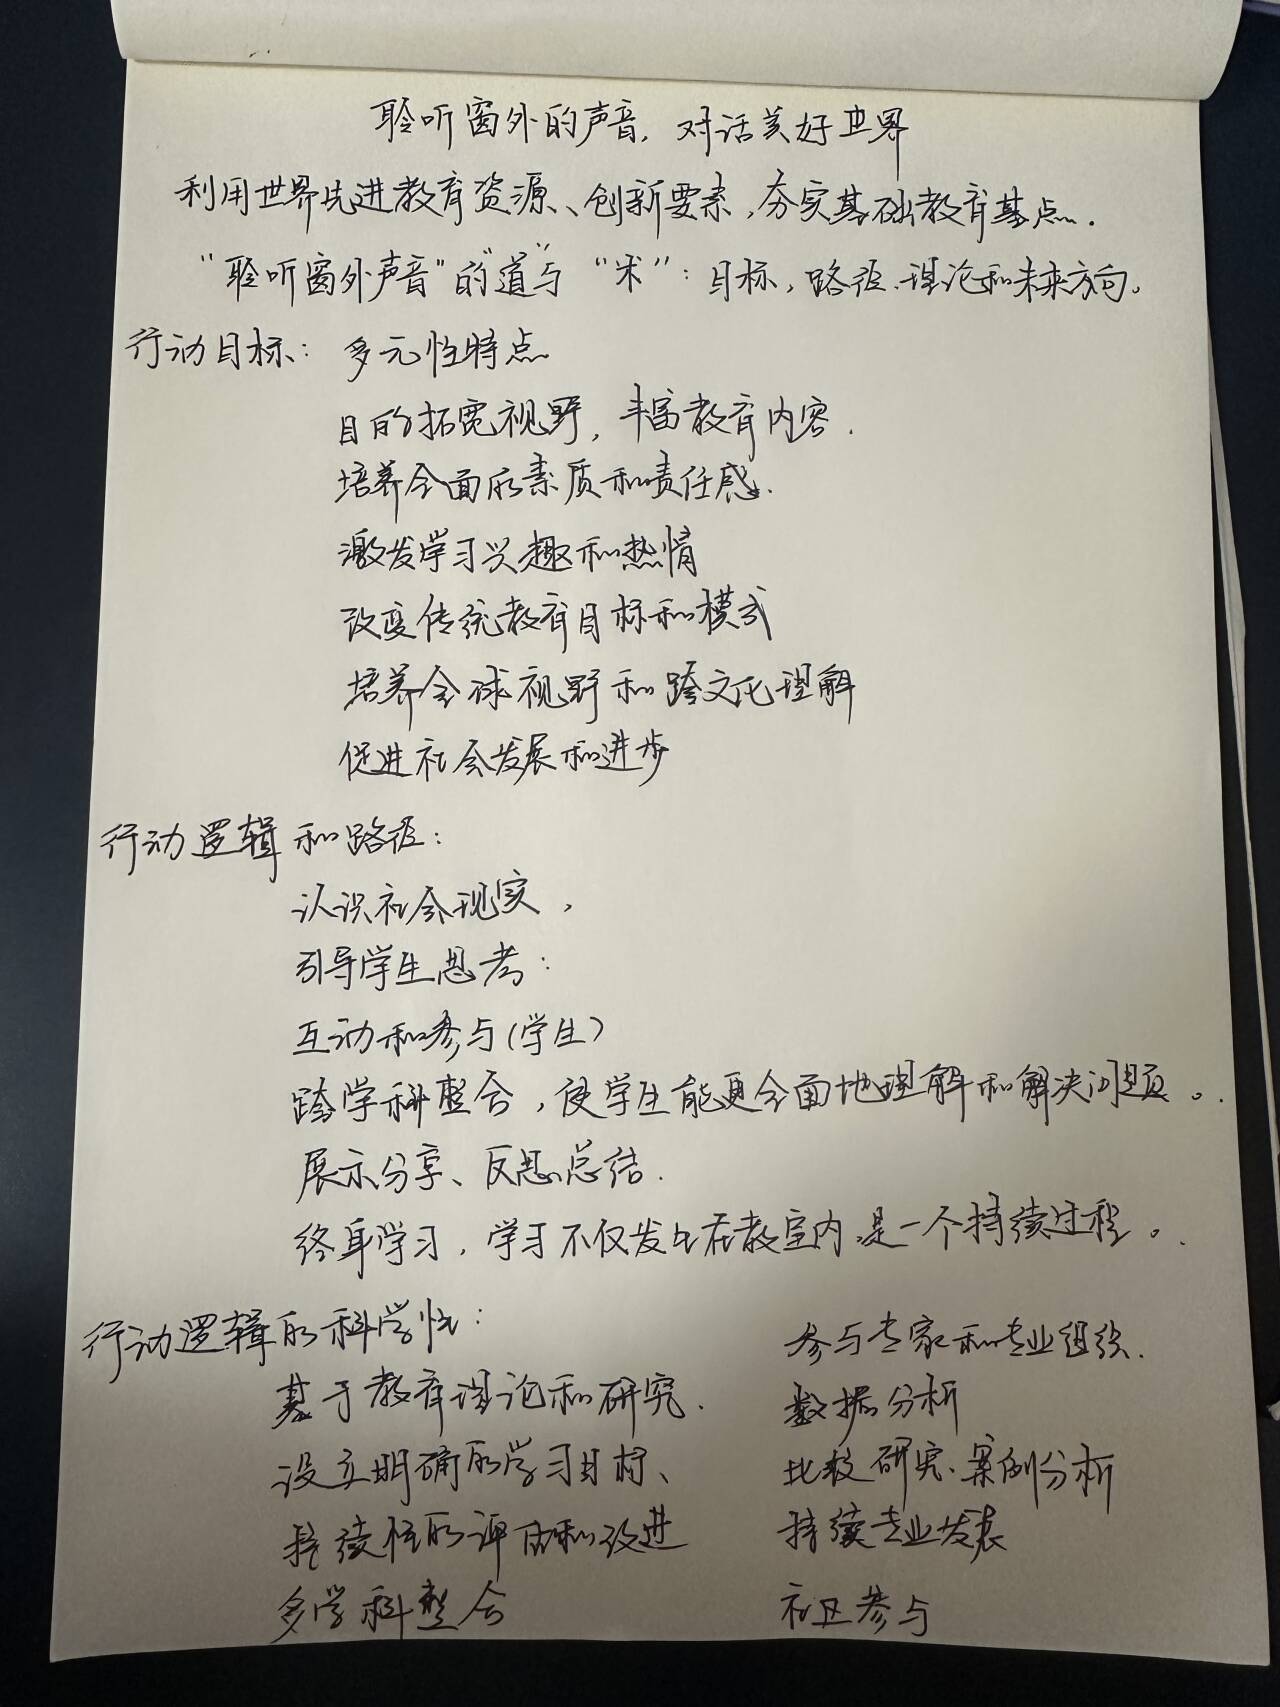 聆听窗外的声音,对话美好世界
利用世界先进教育资源、创新要素,夯实基础教育基点.
“聆听窗外声音”的“道”与“术”:目标,路径、理论和未来方向。
行动目标: 多元性特点
目的拓宽视野,丰富教育内容.
培养全面的素质和责任感.
激发学习兴趣和热情
改变传统教育目标和模式
培养全球视野和跨文化理解
促进社会发展和进步
行动逻辑和路径:
认识社会现实,
引导学生思考:
互动和参与(学生)
跨学科整合,使学生能更全面地理解和解决问题。.
展示分享、反思总结.
终身学习,学习不仅发生在教室内,是一个持续过程。.
行动逻辑的科学性:
基于教育理论和研究.
设立明确的学习目标、
持续性的评估和改进
多学科整合
参与专家和专业组织.
数据分析
比较研究、案例分析
持续专业发展
社区参与